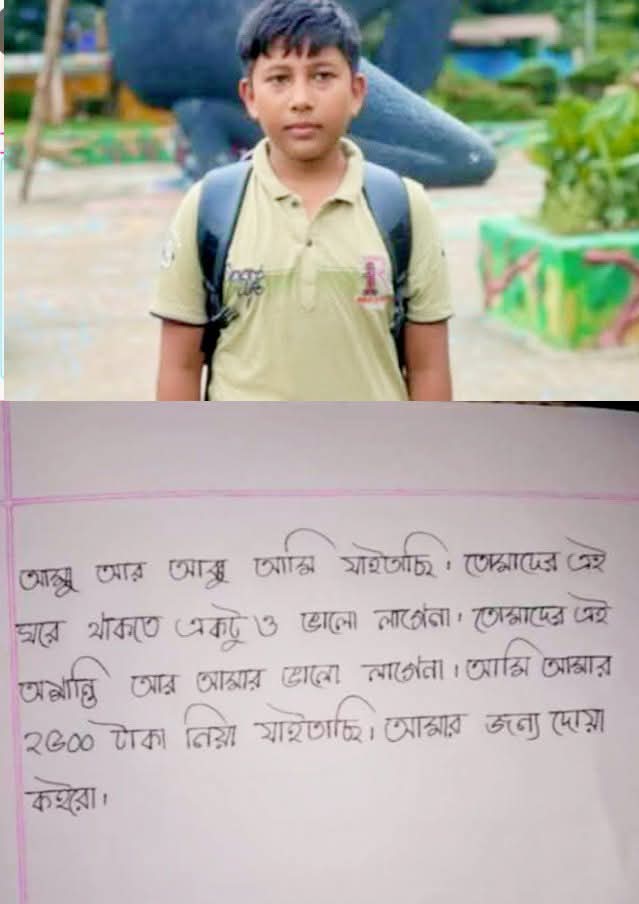 আম্মু আর আব্বু আমি যাইতাছি। তোমাদের এই
ঘরে থাকতে একটু ও ভালো লাগেনা। তোমাদের এই
অশান্তি আর আমার ভালো লাগেনা। আমি আমার
২৫০০ টাকা নিয়া যাইতাছি। আমার জন্য দোয়া
কইরো।